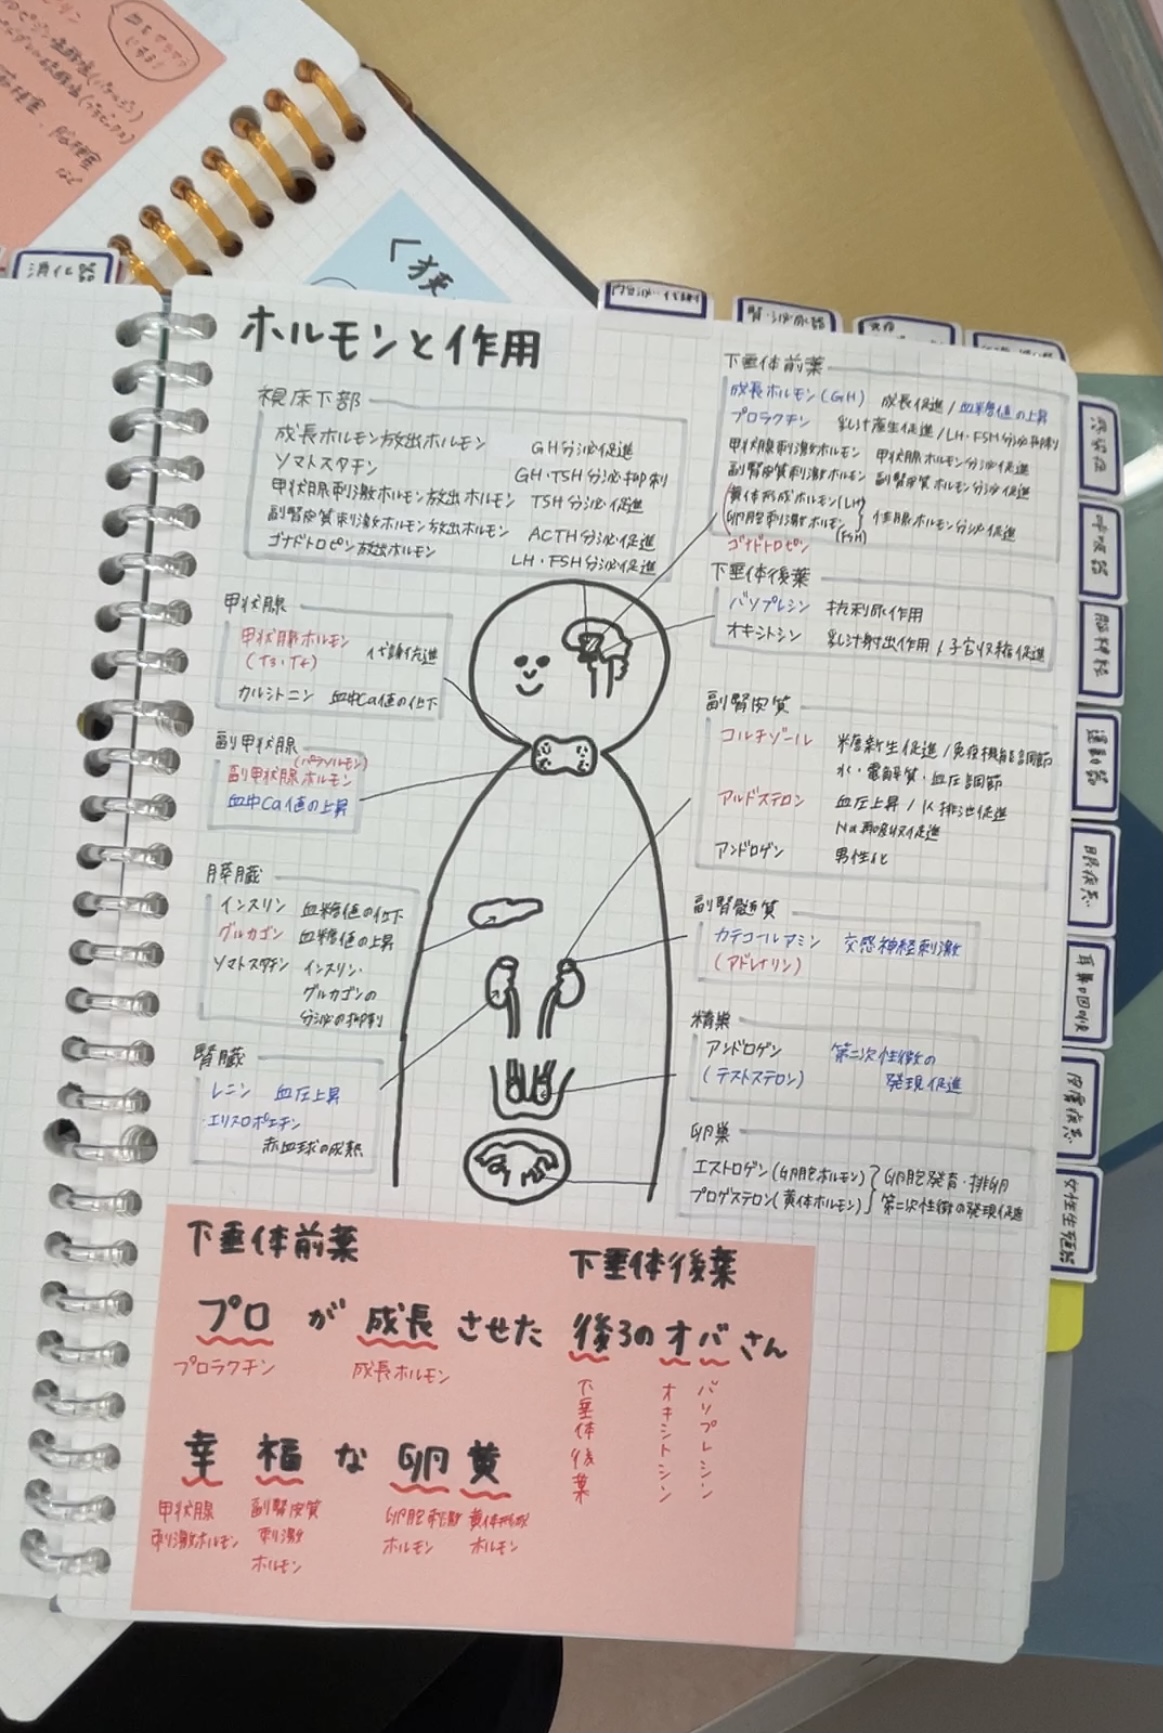 消化器
ホルモンと作用
視床下部
成長ホルモン放出ホルモン GH分泌促進
ソマトスタチン GH・TSH分泌抑制
甲状腺刺激ホルモン放出ホルモン TSH分泌促進
副腎皮質刺激ホルモン放出ホルモン ACTH分泌促進
ゴナドトロピン放出ホルモン LH・FSH分泌促進
甲状腺
甲状腺ホルモン 代謝亢進
(T3・T4)
カルシトニン 血中Ca値の低下
副甲状腺
(パラソルモン)
副甲状腺ホルモン
血中Ca値の上昇
膵臓
インスリン 血糖値の低下
グルカゴン 血糖値の上昇
ソマトスタチン インスリン・
グルカゴンの
分泌の抑制
腎臓
レニン 血圧上昇
・エリスロポエチン
赤血球の成熟
下垂体前葉
成長ホルモン(GH) 成長促進/血糖値の上昇
プロラクチン 乳汁産生促進/LH・FSH分泌抑制
甲状腺刺激ホルモン 甲状腺ホルモン分泌促進
副腎皮質刺激ホルモン 副腎皮質ホルモン分泌促進
黄体形成ホルモン(LH)
卵胞刺激ホルモン 性腺ホルモン分泌促進
(FSH)
ゴナドトロピン
下垂体後葉
バソプレシン 抗利尿作用
オキシトシン 乳汁射出作用/子宮収縮促進
副腎皮質
コルチゾール 糖新生促進/免疫機能調節
水・電解質・血圧調節
アルドステロン 血圧上昇/K排泄促進
Na再吸収促進
アンドロゲン 男性化
副腎髄質
カテコールアミン 交感神経刺激
(アドレナリン)
精巣
アンドロゲン 第二次性徴の
(テストステロン) 発現促進
卵巣
エストロゲン(卵胞ホルモン) 卵胞発育・排卵
プロゲステロン(黄体ホルモン) 第二次性徴の発現促進
下垂体前葉
プロが成長させた
プロラクチン 成長ホルモン
幸福な卵黄
甲状腺 副腎皮質 卵胞刺激 黄体形成
刺激ホルモン 刺激 ホルモン ホルモン
ホルモン
下垂体後葉
後ろのオバさん
下垂体後葉
オキシトシン
バソプレシン
内分泌・代謝
腎・泌尿器
感染症
呼吸器
脳神経
運動器
眼疾患
耳鼻口咽喉
皮膚疾患
女性生殖器